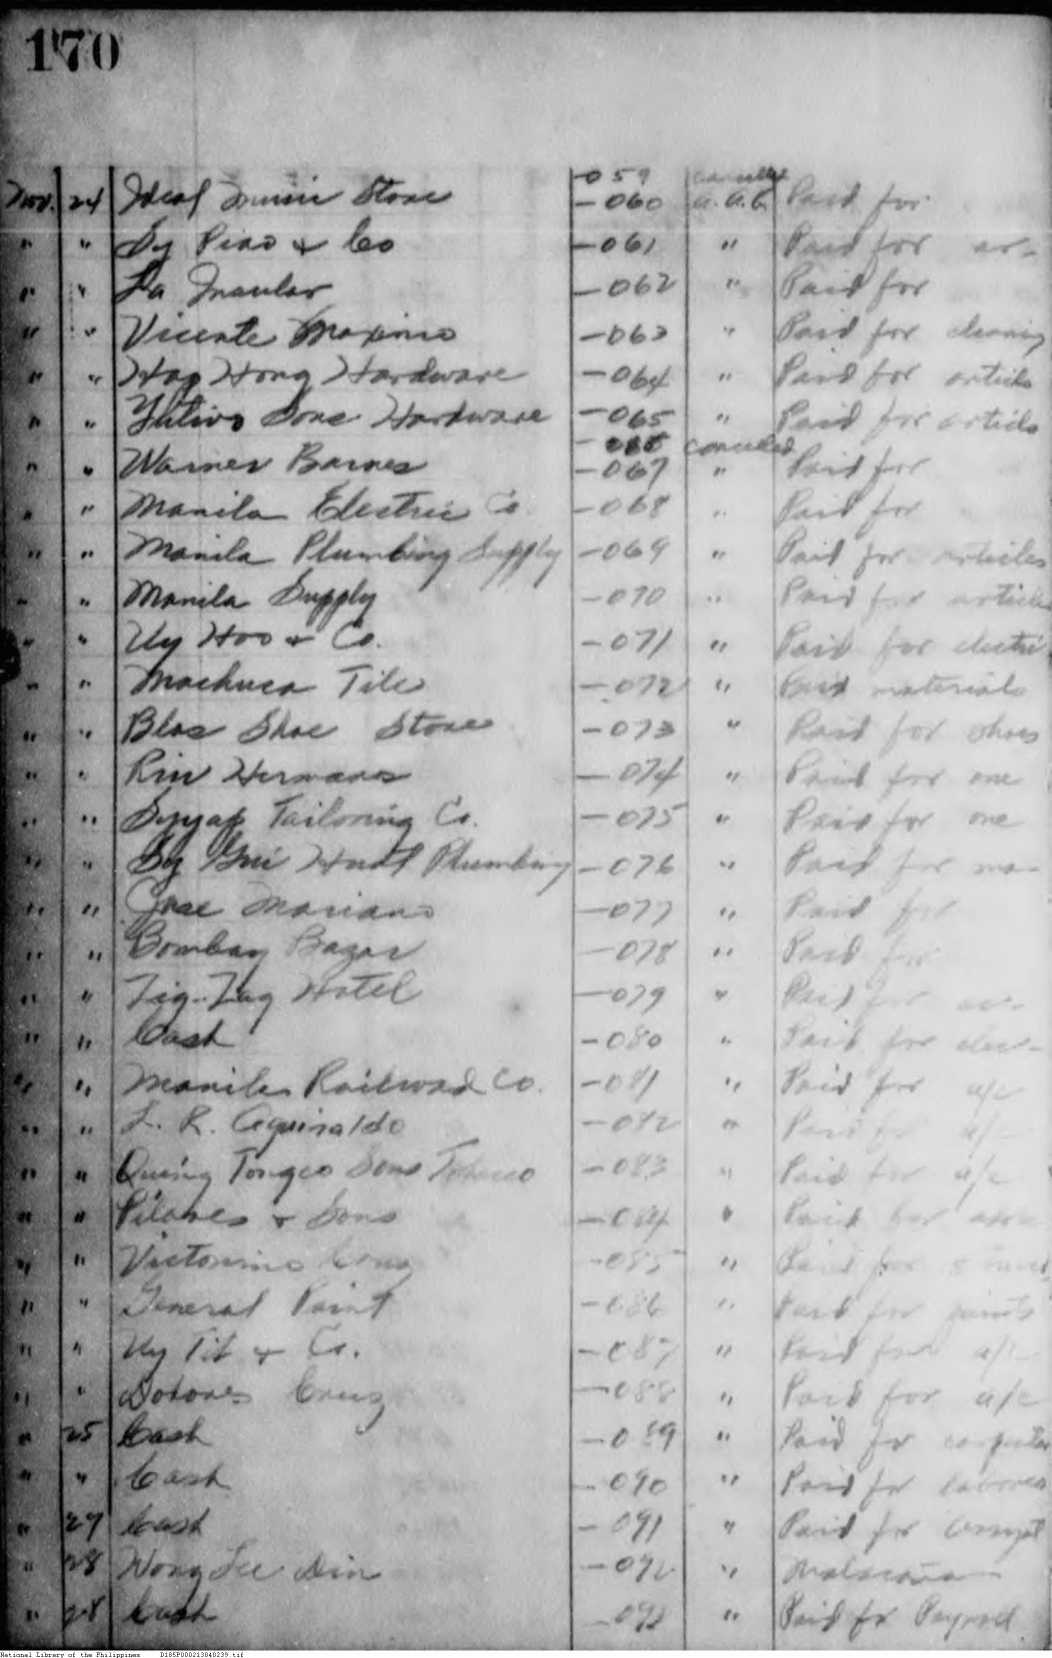 170
-059 cancelled
Nov. 24 Ideal Music Store -060 a.a.c. Paid for
" " Sy Piao & Co -061 " Paid for ar-
" " La Insular -062 " Paid for
" " Vicente Maximo -063 " Paid for cleaning
" " Hap Hong Hardware -064 " Paid for article
" " Yutivo Sons Hardware -065 " Paid for article
-066 canceled
" " Warner Barnes -067 " Paid for
" " Manila Electric Co. -068 " Paid for
" " Manila Plumbing Supply -069 " Paid for articles
" " Manila Supply -070 " Paid for article
" " Uy Hoo & Co. -071 " Paid for electri
" " Machuca Tile -072 " Paid materials
" " Blas Shoe Store -073 " Paid for shoes
" " Riu Hermanos -074 " Paid for one
" " Syyap Tailoring Co. -075 " Paid for one
" " Sy Plumbing -076 " Paid for ma-
" " Jose Mariano -077 " Paid for
" " Bombay Bazar -078 " Paid for
" " Zig-Zag Hotel -079 " Paid for
" " Cash -080 " Paid for
" " Manila Railroad Co. -081 " Paid for a/c
" " L. R. Aguinaldo -082 " Paid for a/c
" " Quing Tongco Sons Tobacco -083 " Paid for a/c
" " Pilares & Sons -084 " Paid for
" " Victorino -085 " Paid for
" " General Paint -086 " Paid for paints
" " Uy Tit & Co. -087 " Paid for a/c
" " Dolores Cruz -088 " Paid for a/c
" 25 Cash -089 " Paid for carpenter
" " Cash -090 " Paid for laborers
" 27 Cash -091 " Paid for
" 28 Wong Lee -092 " Malacañan
" 28 Cash -093 " Paid for Payroll
National Library of the Philippines D185P000213840239.tif